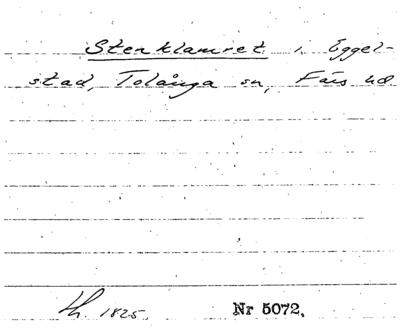 Stenklamret i Eggel-
stad, Tolånga sn, Färs hd
Lh. 1825. Nr 5072.